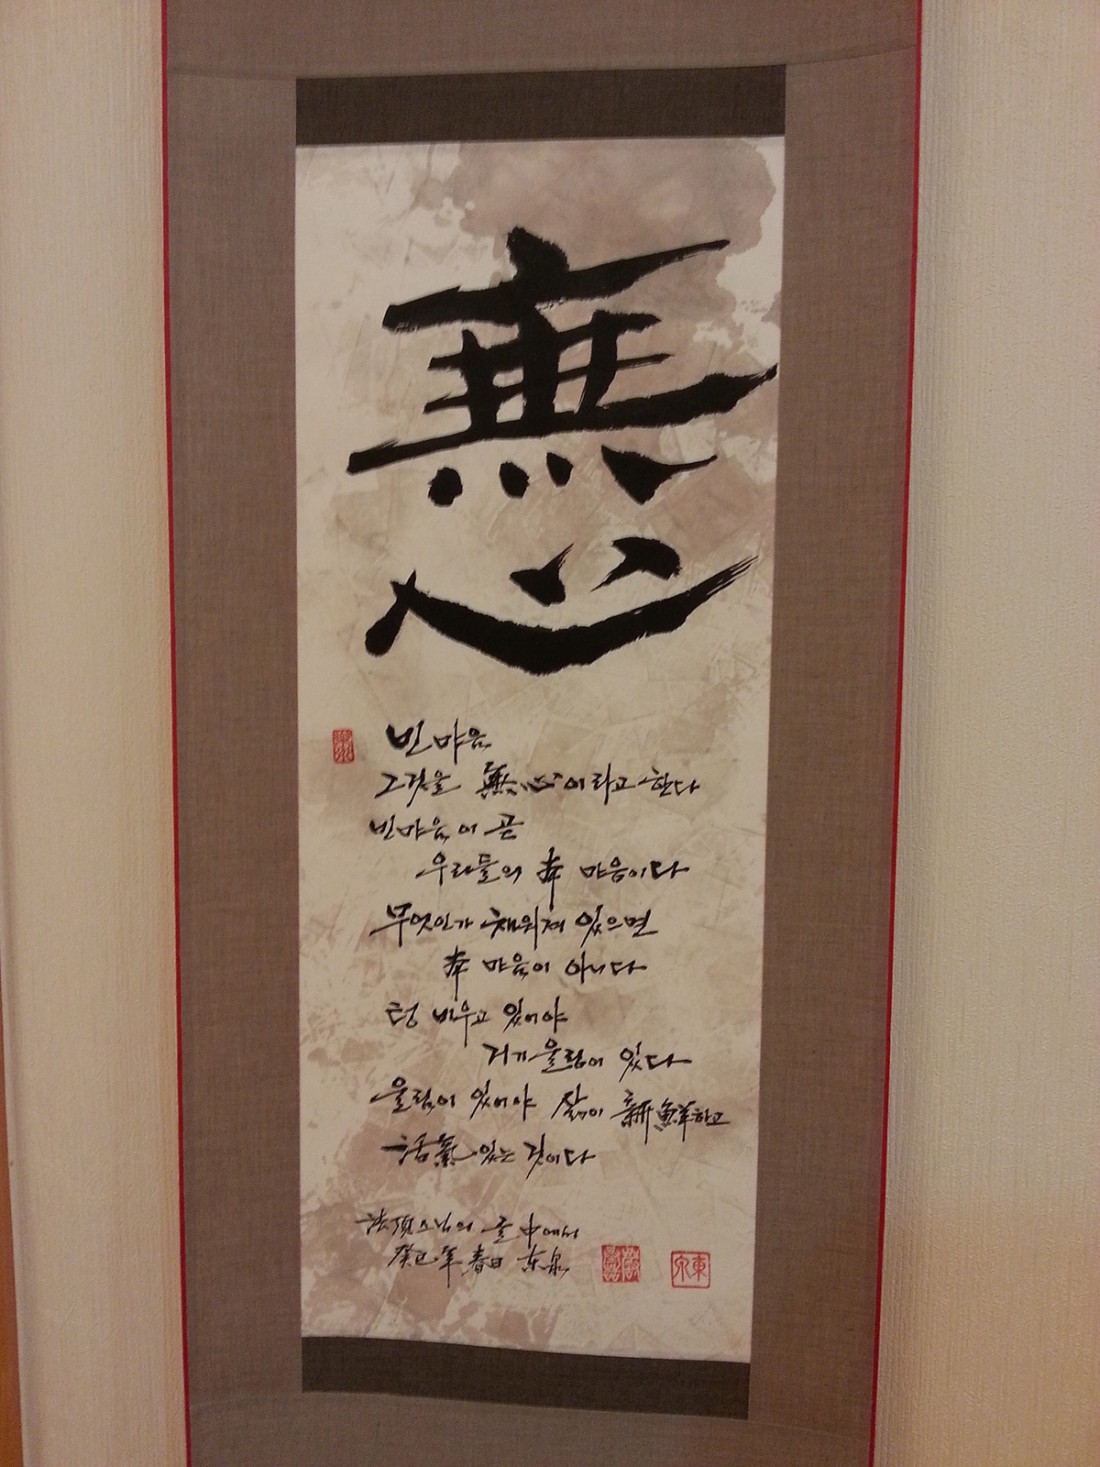 無
心
빈마음
그것을 無心이라고 한다
빈마음이 곧
우리들의 本 마음이다
무엇인가 채워져 있으면
本 마음이 아니다
텅 비우고 있어야
거기 울림이 있다
울림이 있어야 삶이 新鮮하고
活氣 있는 것이다
法頂스님의 글 中에서
癸巳年 春日 东泉
東泉